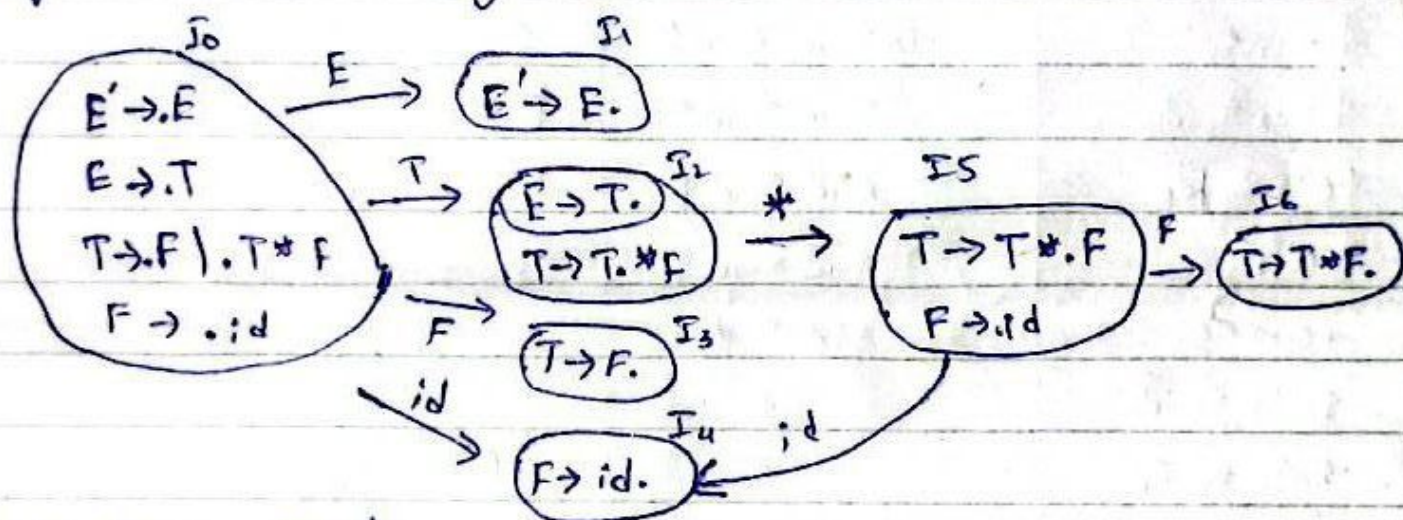 I0
E' → .E
E → .T
T → .F | .T * F
F → .id
E
I1
E' → E.
T
I2
E → T.
T → T. * F
*
I5
T → T * .F
F → .id
F
I6
T → T * F.
F
I3
T → F.
id
I4
F → id.
id